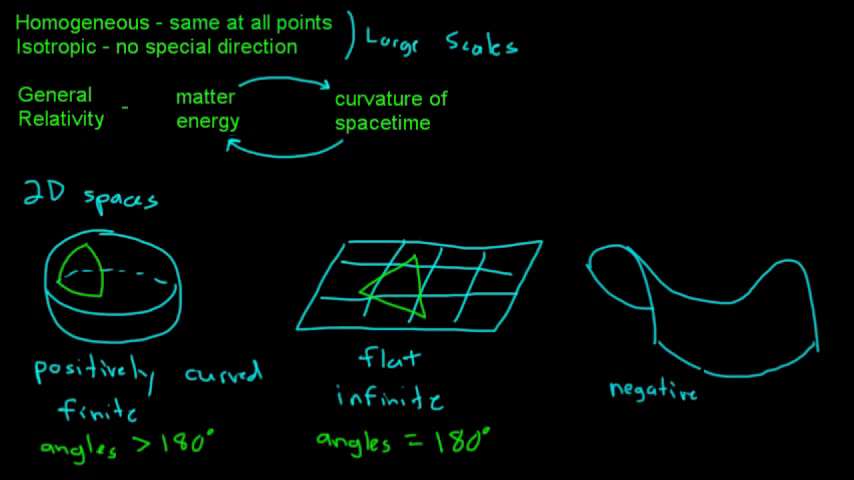 Homogeneous - same at all points
Isotropic - no special direction
Large Scales
General Relativity - matter energy
curvature of spacetime
2D spaces
positively curved
finite
angles > 180°
flat
infinite
angles = 180°
negative